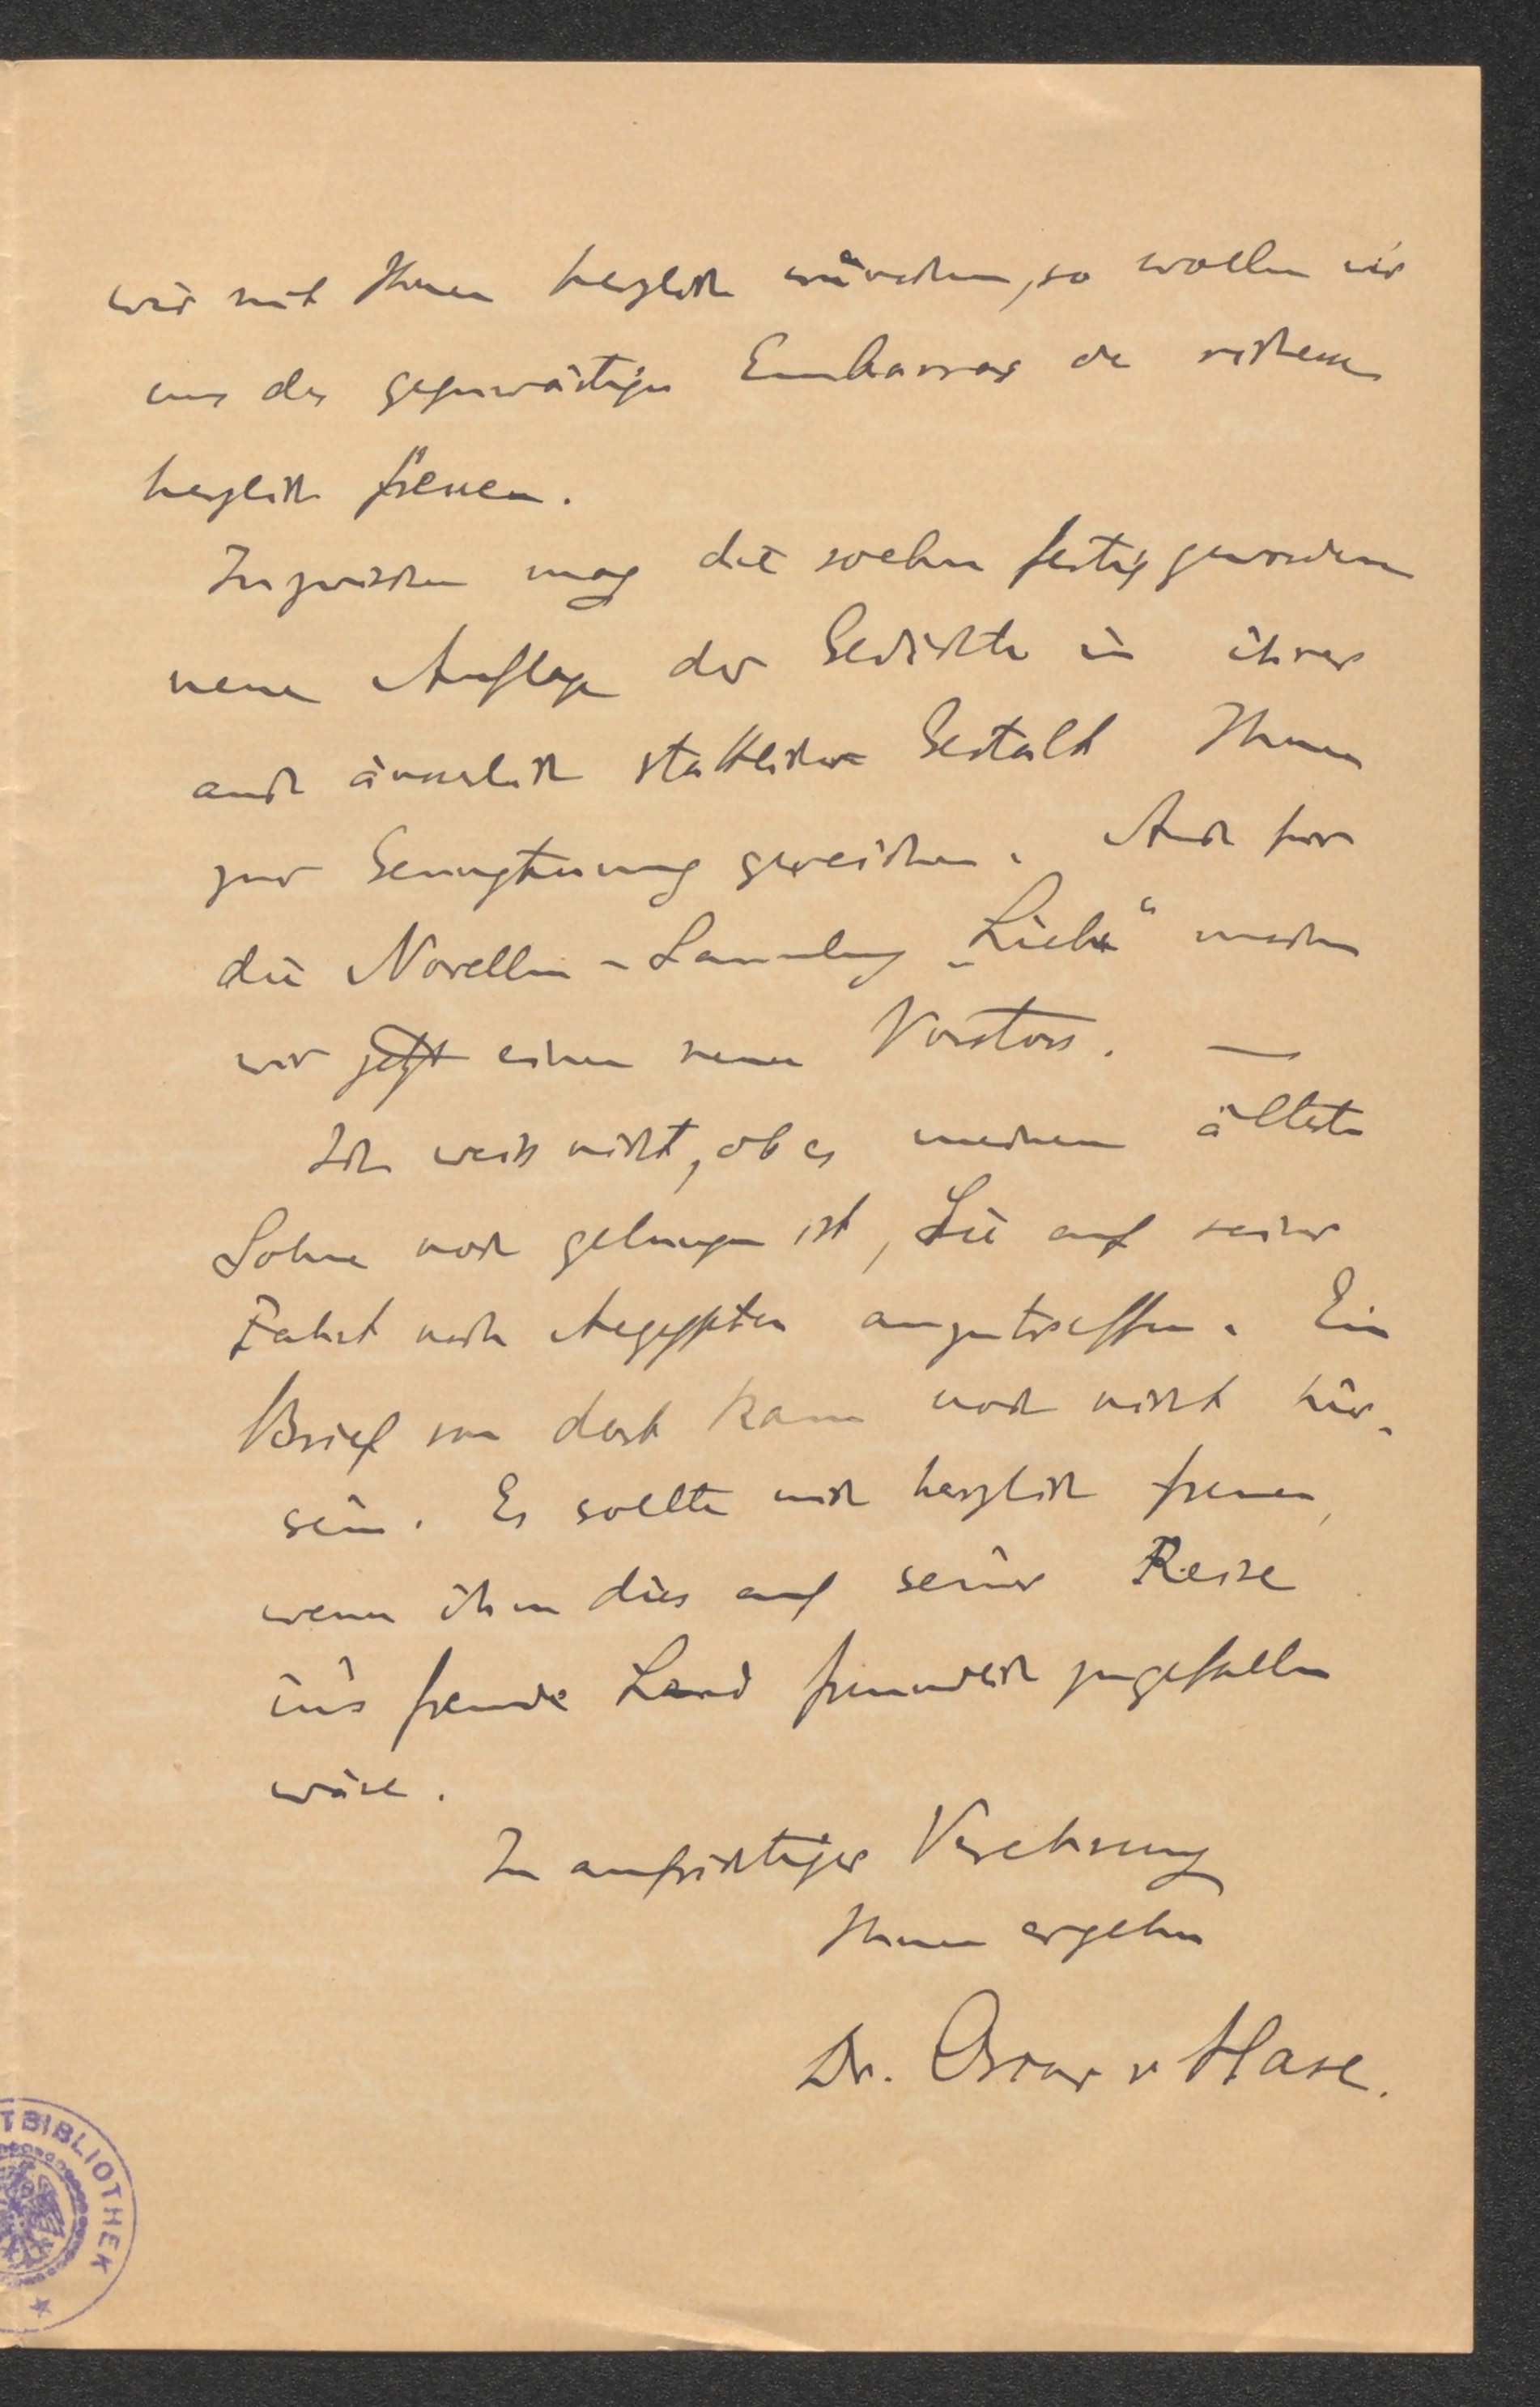 wir mit Ihnen herzlich wünschen, so wollen wir
uns des gegenwärtigen Embarras de richesse
herzlich freuen.
Inzwischen mag die soeben fertig gewordene
neue Auflage der Gedichte in ihrer
auch äusserlich stattlichen Gestalt Ihnen
zur Genugthuung gereichen. Auch für
die Novellen-Sammlung „Liebe“ machen
wir jetzt einen neuen Vorstoss. —
Ich weiss nicht, ob es meinem ältesten
Sohne noch gelungen ist, Sie auf seiner
Fahrt nach Aegypten anzutreffen. Ein
Brief von dort kann noch nicht hier
sein. Es sollte mich herzlich freuen,
wenn ihm dies auf seiner Reise
in's fremde Land freundlich zugefallen
wäre.
In aufrichtiger Verehrung
Ihnen ergeben
Dr. Oscar v Hase.
TBIBLIOTHEK